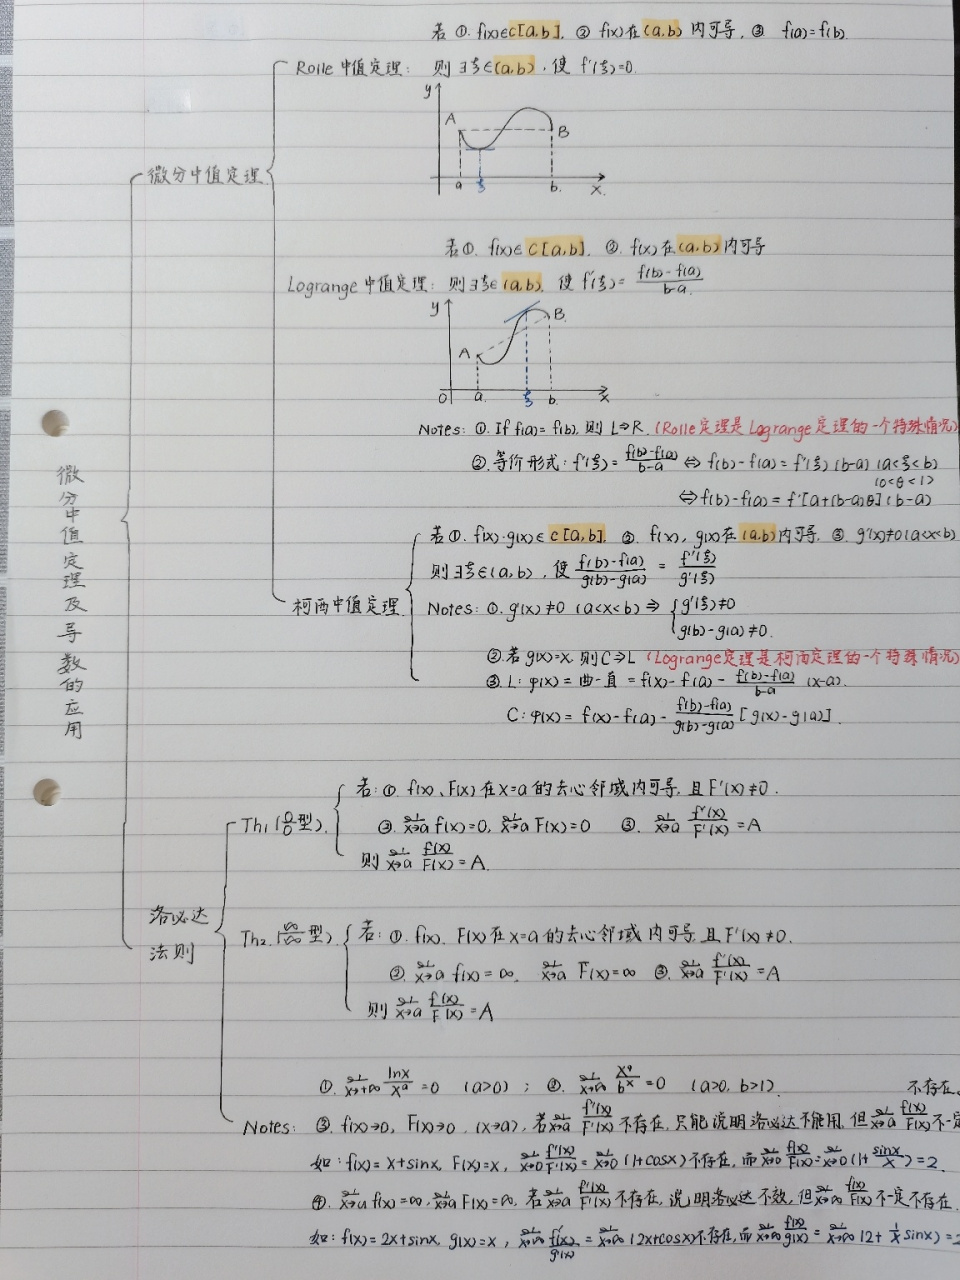 微分中值定理及导数的应用
微分中值定理
若 ①. f(x)∈C[a,b]. ② f(x)在(a,b)内可导, ③ f(a)=f(b).
Rolle 中值定理: 则∃ξ∈(a,b), 使 f'(ξ)=0.
y
A
B
a ξ b. x.
若①. f(x)∈ C[a,b]. ②. f(x)在(a,b)内可导
Logrange 中值定理: 则∃ξ∈(a,b), 使 f'(ξ)= (f(b)-f(a))/(b-a).
y
B.
A
0 a. ξ b. x
Notes: ①. If f(a)=f(b), 则 L⇒R. (Rolle定理是Logrange定理的一个特殊情况)
②.等价形式: f'(ξ)= (f(b)-f(a))/(b-a) ⇔ f(b)-f(a)=f'(ξ)(b-a) (a<ξ<b)
(0<θ<1)
⇔ f(b)-f(a)=f'[a+(b-a)θ](b-a)
柯西中值定理
若①. f(x)·g(x)∈ C[a,b]. ②. f(x), g(x)在(a,b)内可导. ③. g'(x)≠0(a<x<b)
则∃ξ∈(a,b), 使 (f(b)-f(a))/(g(b)-g(a)) = f'(ξ)/g'(ξ)
Notes: ①. g'(x)≠0 (a<x<b) ⇒ { g'(ξ)≠0
g(b)-g(a)≠0.
②.若 g(x)=x, 则C⇒L (Logrange定理是柯西定理的一个特殊情况)
③. L: φ(x)=曲-直=f(x)-f(a)- (f(b)-f(a))/(b-a) (x-a).
C: φ(x)= f(x)-f(a)- (f(b)-f(a))/(g(b)-g(a)) [g(x)-g(a)].
洛必达
法则
Th1 (0/0型).
若: ①. f(x)、F(x)在x=a的去心邻域内可导, 且F'(x)≠0.
②. lim x→a f(x)=0, lim x→a F(x)=0 ③. lim x→a f'(x)/F'(x) =A
则 lim x→a f(x)/F(x) =A.
Th2. (∞/∞型)
若: ①. f(x). F(x)在x=a的去心邻域内可导, 且F'(x)≠0.
②. lim x→a f(x)=∞. lim x→a F(x)=∞ ③. lim x→a f'(x)/F'(x) =A
则 lim x→a f(x)/F(x) =A
①. lim x→+∞ lnx/xᵃ =0 (a>0) ; ②. lim x→∞ xᵃ/bˣ =0 (a>0, b>1). 不存在.
Notes: ③. f(x)→0, F(x)→0. (x→a), 若lim x→a f'(x)/F'(x) 不存在, 只能说明洛必达不能用, 但lim x→a f(x)/F(x) 不一定
如: f(x)=x+sinx, F(x)=x, lim x→0 f'(x)/F'(x) = lim x→0 (1+cosx)不存在, 而 lim x→0 f(x)/F(x) = lim x→0 (1+ sinx/x)=2.
④. lim x→a f(x)=∞, lim x→a F(x)=∞, 若 lim x→a f'(x)/F'(x) 不存在, 说明洛必达不效, 但 lim x→∞ f(x)/F(x) 不一定不存在.
如: f(x)=2x+sinx, g(x)=x, lim x→∞ f'(x)/g'(x) = lim x→∞ (2x+cosx)不存在, 而 lim x→∞ f(x)/g(x) = lim x→∞ (2+ 1/x sinx)=2